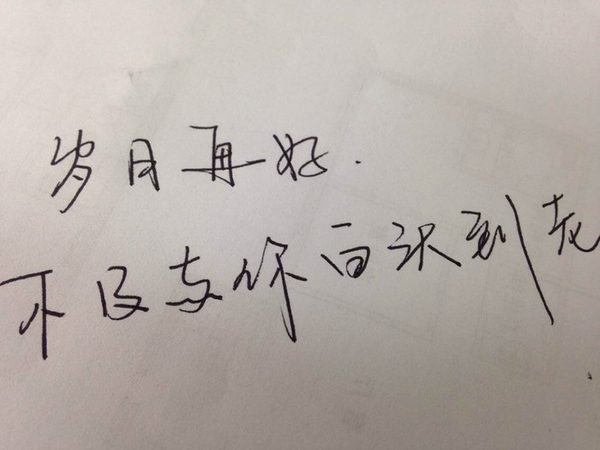 岁月再好.
不及与你百识到老